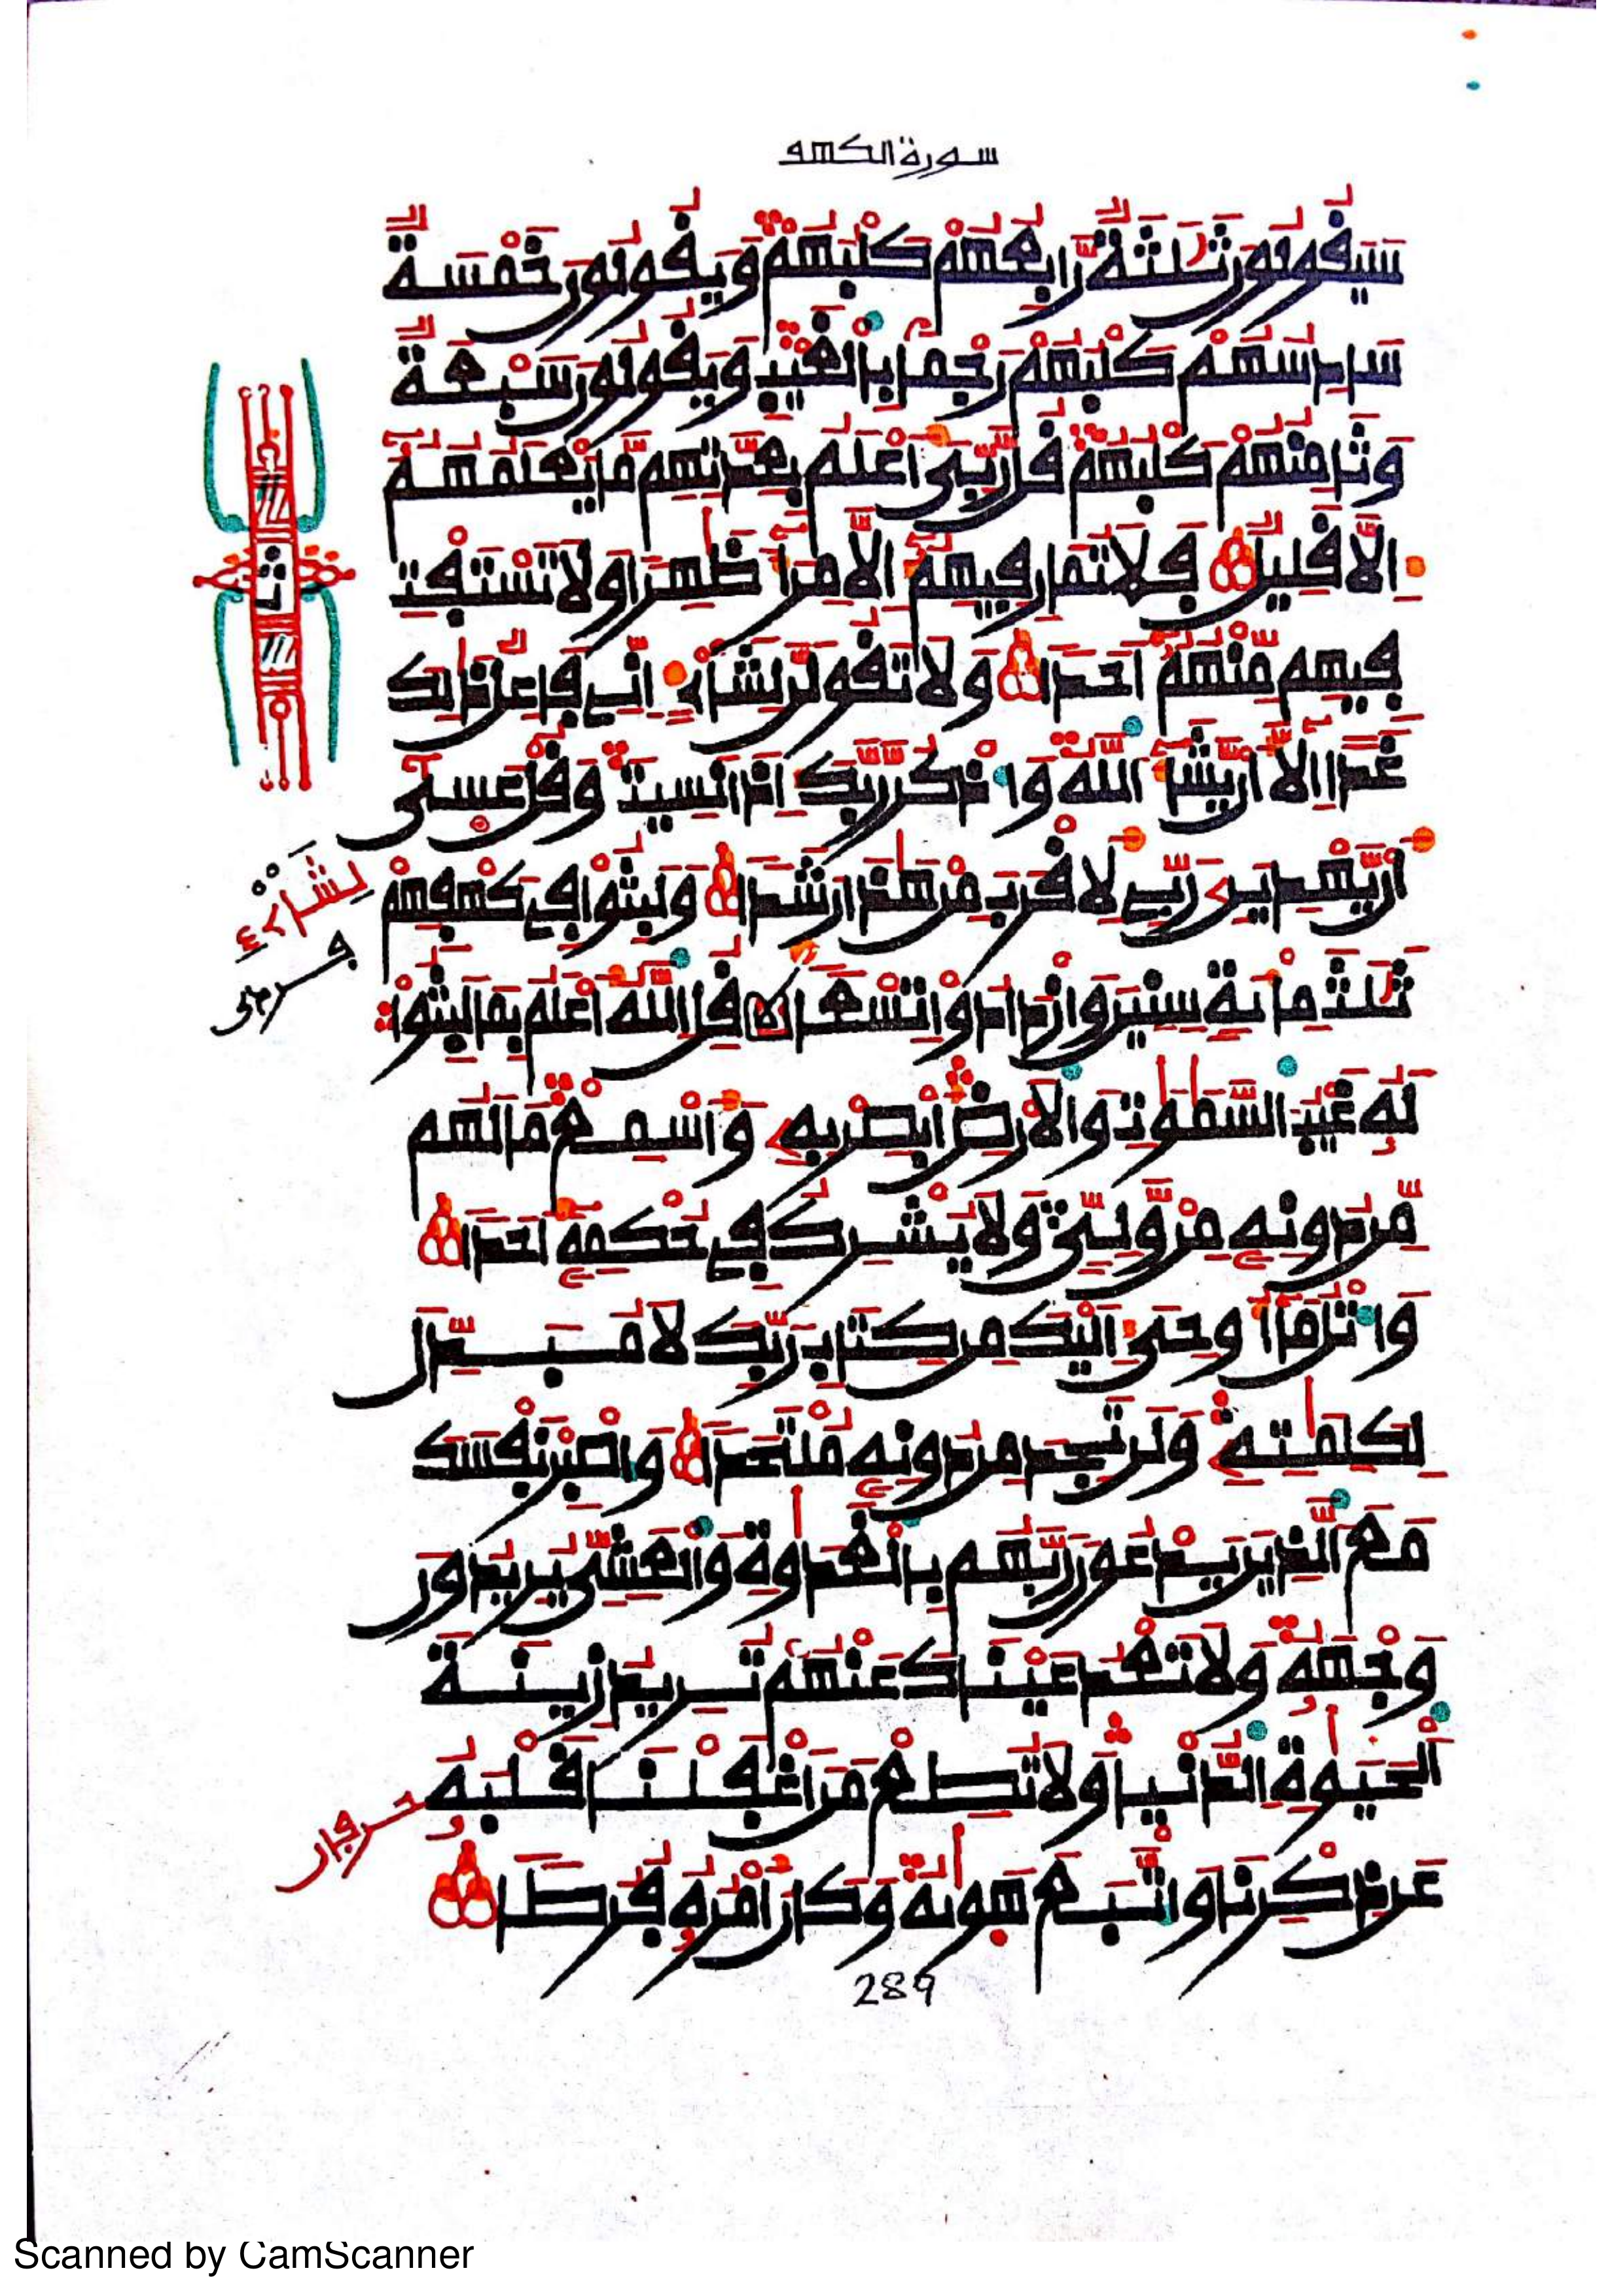 سورة الكهف
سَيَقُولُونَ ثَلَٰثَةٌ رَّابِعُهُمْ كَلْبُهُمْ وَيَقُولُونَ خَمْسَةٌ
سَادِسُهُمْ كَلْبُهُمْ رَجْمَا بِالْغَيْبِ وَيَقُولُونَ سَبْعَةٌ
وَثَامِنُهُمْ كَلْبُهُمْ قُل رَّبِّي أَعْلَمُ بِعِدَّتِهِم مَّا يَعْلَمُهُمُ
إِلَّا قَلِيلٌ فَلَا تُمَارِ فِيهِمُ إِلَّا مِرَآءً ظَٰهِرًا وَلَا تَسْتَفْتِ
فِيهِم مِّنْهُمُ أَحَدًا وَلَا تَقُولَنَّ لِشَاْىْءٍ إِنِّي فَاعِلٌ ذَٰلِكَ
غَدًا إِلَّا أَنْ يَّشَآءَ اللَّهُ وَاذْكُر رَّبَّكَ إِذَا نَسِيتَ وَقُلْ عَسَىٰ
أَنْ يَّهْدِيَنِۦ رَبِّي لِأَقْرَبَ مِنْ هَٰذَا رَشَدًا وَلَبِثُوا فِي كَهْفِهِمْ
ثَلَٰثَ مِائَةٍ سِنِينَ وَازْدَادُوا تِسْعًا قُلِ اللَّهُ أَعْلَمُ بِمَا لَبِثُوا
لَهُۥ غَيْبُ السَّمَٰوَٰتِ وَالْأَرْضِ أَبْصِرْ بِهِۦ وَأَسْمِعْ مَا لَهُم
مِّن دُونِهِۦ مِنْ وَّلِيٍّ وَلَا يُشْرِكُ فِي حُكْمِهِۦ أَحَدًا
وَاتْلُ مَآ أُوحِيَ إِلَيْكَ مِن كِتَابِ رَبِّكَ لَا مُبَدِّلَ
لِكَلِمَٰتِهِۦ وَلَن تَجِدَ مِن دُونِهِۦ مُلْتَحَدًا وَاصْبِرْ نَفْسَكَ
مَعَ الَّذِينَ يَدْعُونَ رَبَّهُم بِالْغَدَوٰةِ وَالْعَشِيِّ يُرِيدُونَ
وَجْهَهُۥ وَلَا تَعْدُ عَيْنَاكَ عَنْهُمْ تُرِيدُ زِينَةَ
الْحَيَوٰةِ الدُّنْيَا وَلَا تُطِعْ مَنْ أَغْفَلْنَا قَلْبَهُۥ
عَن ذِكْرِنَا وَاتَّبَعَ هَوَىٰهُ وَكَانَ أَمْرُهُۥ فُرُطًا
289
Scanned by CamScanner